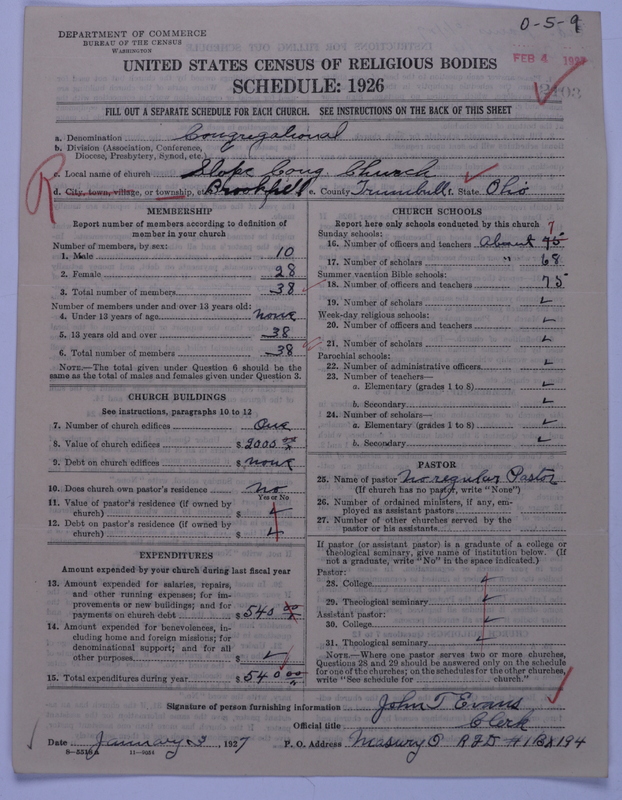 0-5-9
DEPARTMENT OF COMMERCE
BUREAU OF THE CENSUS
WASHINGTON
FEB 4 1927
UNITED STATES CENSUS OF RELIGIOUS BODIES
SCHEDULE: 1926
FILL OUT A SEPARATE SCHEDULE FOR EACH CHURCH. SEE INSTRUCTIONS ON THE BACK OF THIS SHEET
a. Denomination Congregational
b. Division (Association, Conference,
Diocese, Presbytery, Synod, etc.)
c. Local name of church Slope Cong. Church
d. City, town, village, or township, etc. Brookfield e. County Trumbull f. State Ohio
R
MEMBERSHIP
Report number of members according to definition of
member in your church
Number of members, by sex:
1. Male 10
2. Female 28
3. Total number of members 38
Number of members under and over 13 years old:
4. Under 13 years of age none
5. 13 years old and over 38
6. Total number of members 38
NOTE.—The total given under Question 6 should be
same as the total of males and females given under Question 3.
CHURCH BUILDINGS
See instructions, paragraphs 10 to 12
7. Number of church edifices One
8. Value of church edifices $ 2000 00/x
9. Debt on church edifices $ none
10. Does church own pastor's residence no
Yes or No
11. Value of pastor's residence (if owned by
church) $
12. Debt on pastor's residence (if owned by
church) $
EXPENDITURES
Amount expended by your church during last fiscal year
13. Amount expended for salaries, repairs,
and other running expenses; for im-
provements or new buildings; and for
payments on church debt $ 540 00/x
14. Amount expended for benevolences, in-
cluding home and foreign missions; for
denominational support; and for all
other purposes $
15. Total expenditures during year $ 540 00
CHURCH SCHOOLS
Report here only schools conducted by this church
Sunday schools: 7
16. Number of officers and teachers about 75
17. Number of scholars " 68
Summer vacation Bible schools:
18. Number of officers and teachers 75
19. Number of scholars
Week-day religious schools:
20. Number of officers and teachers
21. Number of scholars
Parochial schools:
22. Number of administrative officers
23. Number of teachers—
a. Elementary (grades 1 to 8)
b. Secondary
24. Number of scholars—
a. Elementary (grades 1 to 8)
b. Secondary
PASTOR
25. Name of pastor No regular Pastor
(If church has no pastor, write "None")
26. Number of ordained ministers, if any, em-
ployed as assistant pastors
27. Number of other churches served by the
pastor or his assistants
If pastor (or assistant pastor) is a graduate of a college or
theological seminary, give name of institution below. (If
not a graduate, write "No" in the space indicated.)
Pastor:
28. College
29. Theological seminary
Assistant pastor:
30. College
31. Theological seminary
NOTE.—Where one pastor serves two or more churches,
Questions 28 and 29 should be answered only on the schedule
for one of the churches; on the schedules for the other churches,
write "See schedule for church."
Signature of person furnishing information John T Evans
Official title Clerk
Date January 3 1927 P. O. Address Masury O RFD #1 Bx 194
8-5518a 11-9034